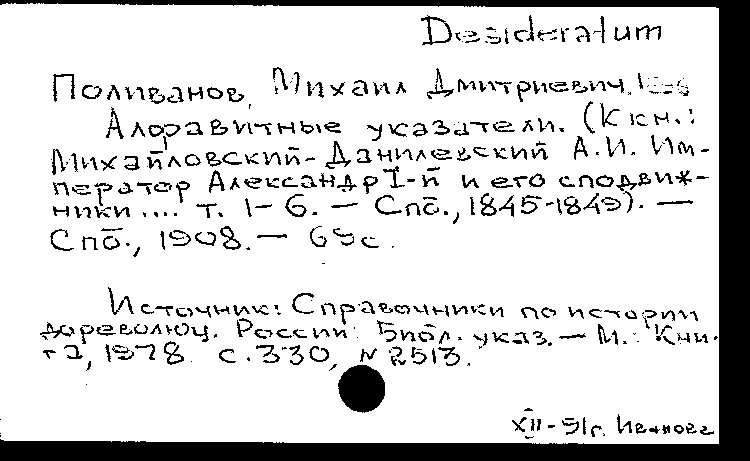 Desideratum
Поливанов, Михаил Дмитриевич,
Алфавитные указатели. (К кн.:
Михайловский-Данилевский А.И. Им-
ператор Александр I-й и его сподвиж-
ники .... т. 1-6. — Спб., 1845-1849). —
Спб., 1908. — 69 с.
Источник: Справочники по истории
дореволюц. России: Библ. указ. — М.: Кни-
га, 1978. с. 330, № 2513.
XII-91г. Иванова